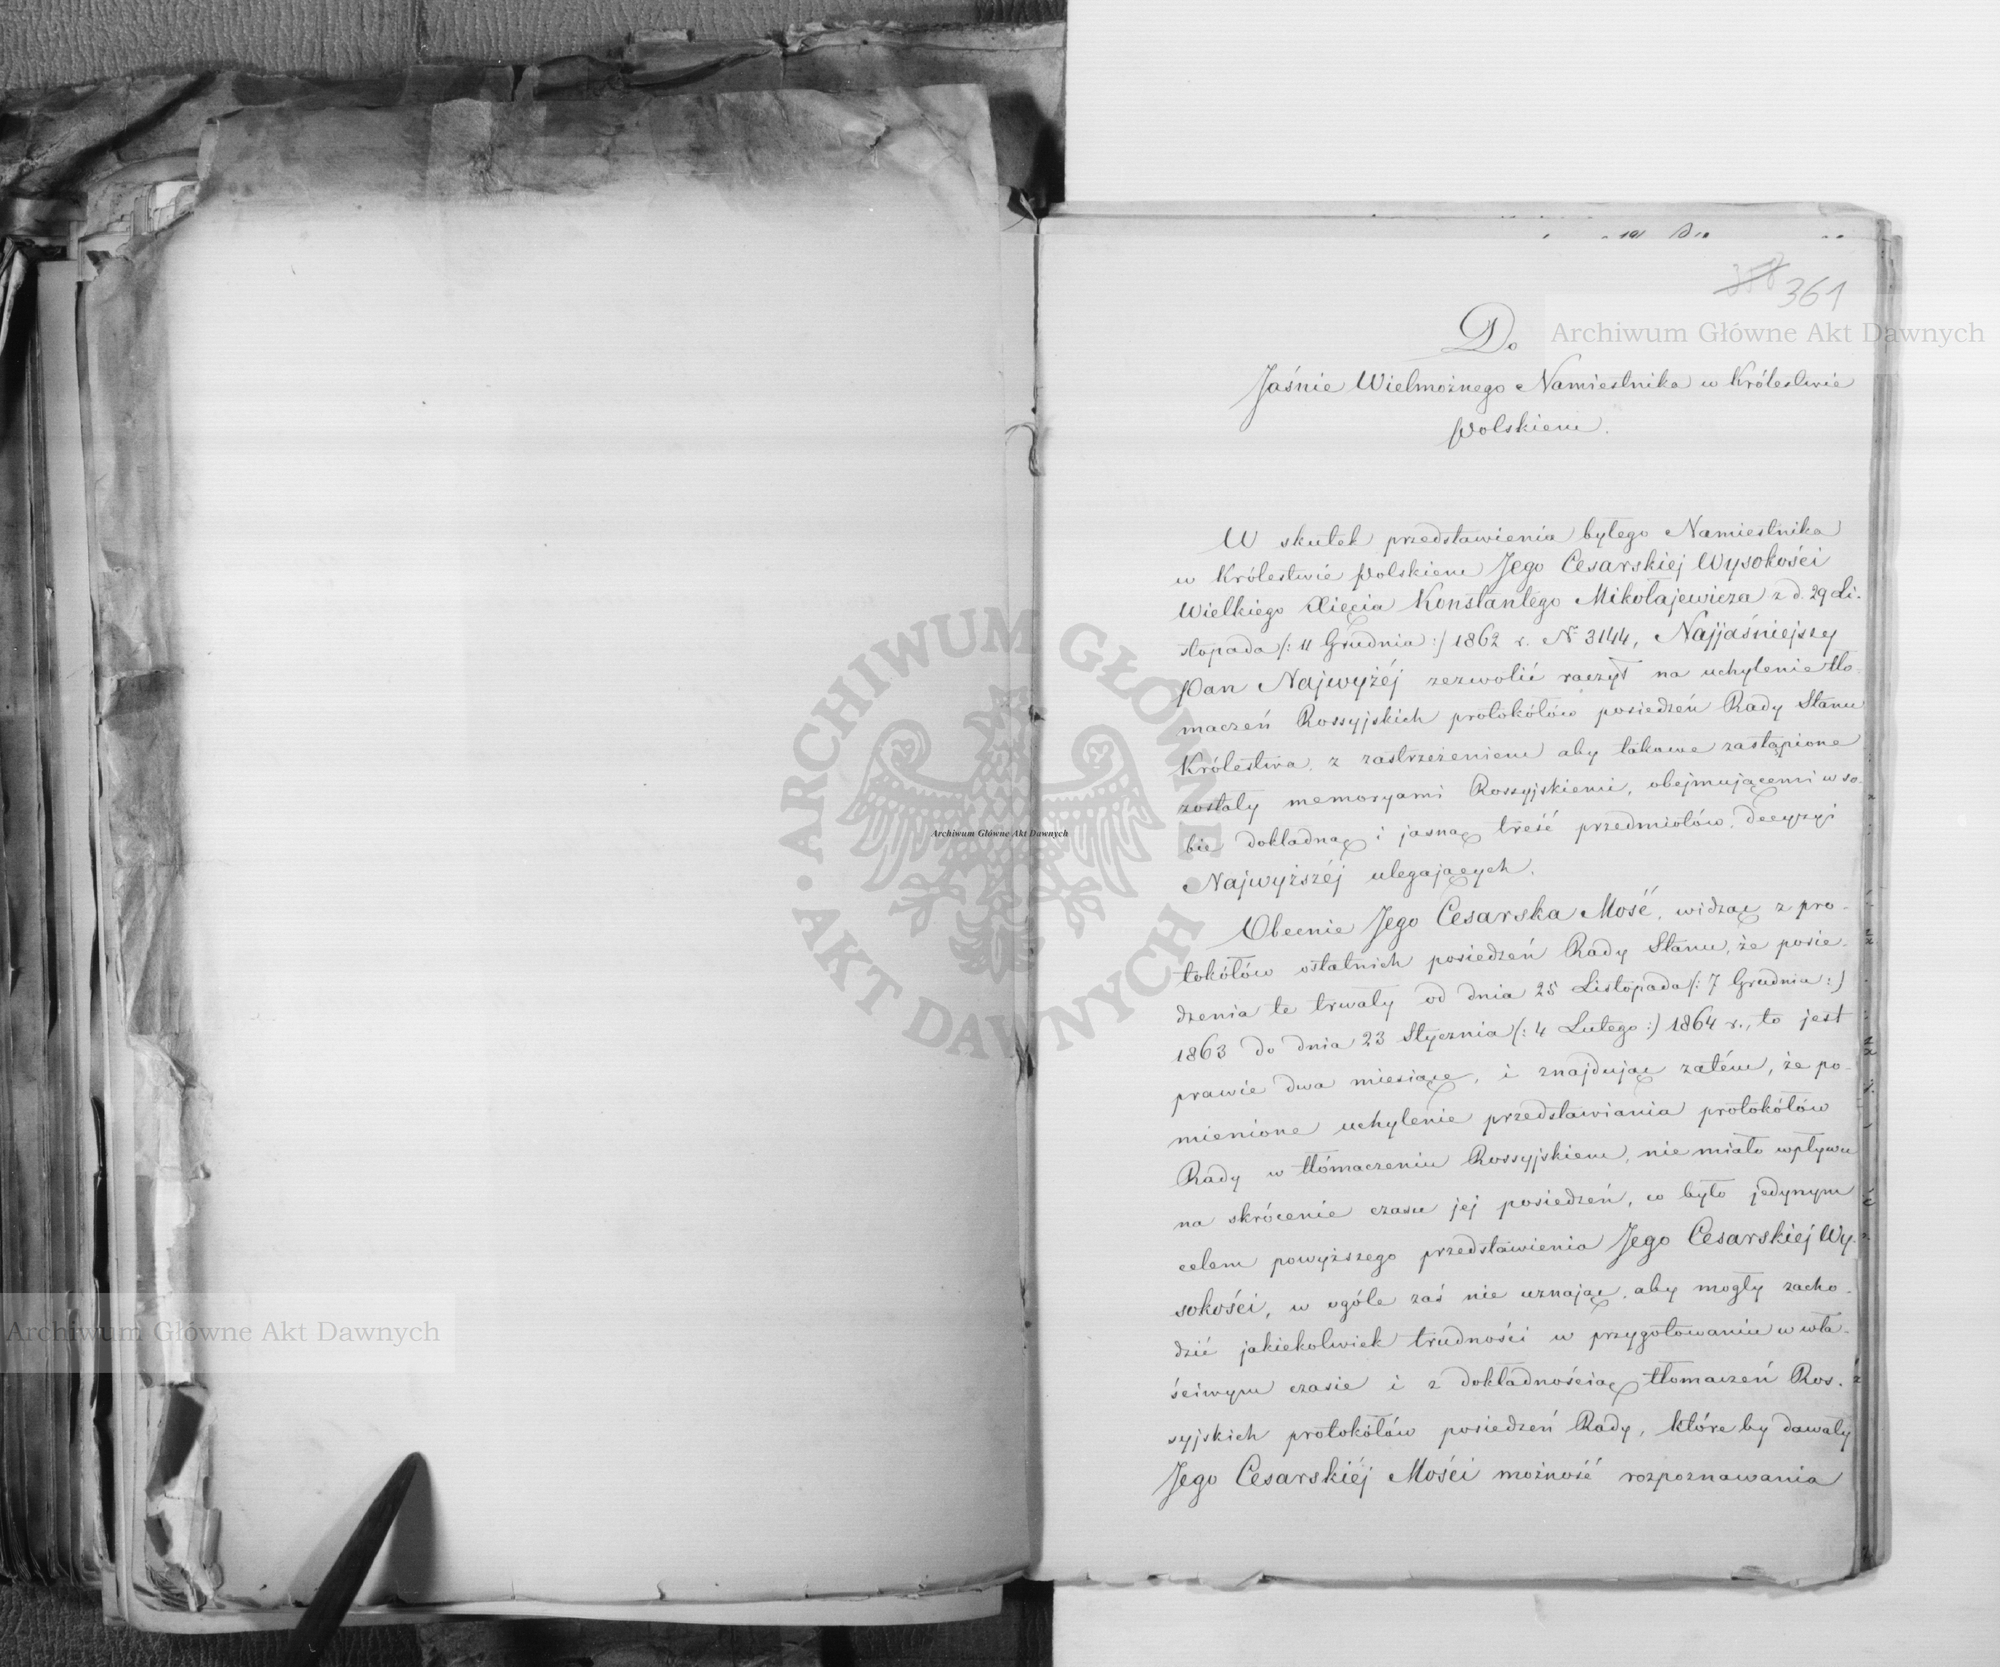 358 361
Do
Jaśnie Wielmożnego Namiestnika w Królestwie
Polskiem.
W skutek przedstawienia byłego Namiestnika
w Królestwie Polskiem Jego Cesarskiej Wysokości
Wielkiego Xięcia Konstantego Mikołajewicza z d. 29 Li-
stopada /: 11 Grudnia :/ 1862 r. № 3144, Najjaśniejszy
Pan Najwyżéj zezwolić raczył na uchylenie tło-
maczeń Rossyjskich protokółów posiedzeń Rady Stanu
Królestwa, z zastrzeżeniem aby takowe zastąpione
zostały memoryami Rossyjskiemi, obejmującemi w so-
bie dokładną i jasną treść przedmiotów, decyzyi
Najwyższéj ulegających.
Obecnie Jego Cesarska Mość, widząc z pro-
tokółów ostatnich posiedzeń Rady Stanu, że posie-
dzenia te trwały od dnia 25 Listopada /: 7 Grudnia :/
1863 do dnia 23 Stycznia /: 4 Lutego :/ 1864 r., to jest
prawie dwa miesiące, i znajdując zatém, że po-
mienione uchylenie przedstawiania protokółów
Rady w tłómaczeniu Rossyjskiem, nie miało wpływu
na skrócenie czasu jej posiedzeń, co było jedynym
celem powyższego przedstawienia Jego Cesarskiej Wy-
sokości, w ogóle zaś nie uznając, aby mogły zacho-
dzić jakiekolwiek trudności w przygotowaniu w wła-
ściwym czasie i z dokładnością tłomaczeń Ros-
syjskich protokółów posiedzeń Rady, które by dawały
Jego Cesarskiéj Mości możność rozpoznawania
Archiwum Główne Akt Dawnych
Archiwum Główne Akt Dawnych
Archiwum Główne Akt Dawnych
ARCHIWUM GŁÓWNE AKT DAWNYCH